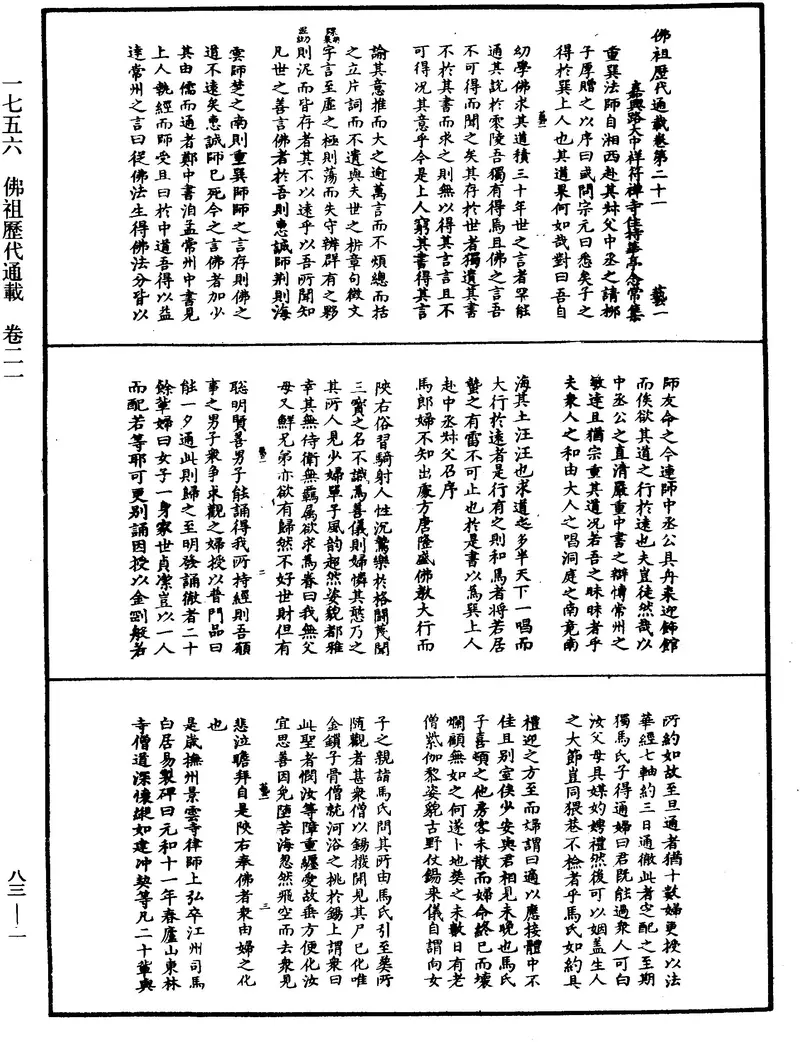 佛祖歷代通載卷第二十一
嘉興路大中祥符禪寺住持華亭念常集 藝一
重巽法師自湘西赴其妹父中丞之請柳
子厚贈之以序曰或問宗元曰悉矣子之
得於巽上人也其道果何如哉對曰吾自
幼學佛求其道積三十年世之言者罕能
通其說於零陵吾獨有得焉且佛之言吾
不可得而聞之矣其存於世者獨遺其書
不於其書而求之則無以得其言言且不
可得况其意乎今是上人窮其書得其言
論其意推而大之逾萬言而不煩總而括
之立片詞而不遺與夫世之枿章句微文
字言至虛之極則蕩而失守辨群有之夥
則泥而皆存者其不以遠乎以吾所聞知
凡世之善言佛者於吾則惠誠師荆則海
雲師楚之南則重巽師師之言存則佛之
道不遠矣惠誠師已死今之言佛者加少
其由儒而通者鄭中書洎孟常州中書見
上人執經而師受且曰於中道吾得以益
達常州之言曰從佛法生得佛法分皆以
師友命之今連師中丞公具舟來迎飾館
而俟欲其道之行於遠也夫豈徒然哉以
中丞公之直清嚴重中書之辯博常州之
敏達且猶宗重其道况若吾之昧昧者乎
夫衆人之和由大人之唱洞庭之南竟南
海其土汪汪也求道之多半天下一唱而
大行於遠者是行有之則和焉者將若居
蟄之有雷不可止也於是書以爲巽上人
赴中丞妹父召序
馬郎婦不知出處方唐隆盛佛教大行而
陝右俗習騎射人性沉鷙樂於格鬪蔑聞
三寶之名不識爲善儀則婦憐其憨乃之
其所人見少婦單子風韵超然姿貌都雅
幸其無侍衛無羈属欲求爲眷曰我無父
母又鮮兄弟亦欲有歸然不好世財但有
聡明賢善男子能誦得我所持經則吾願
事之男子衆爭求觀之婦授以普門品曰
能一夕通此則歸之至明發誦徹者二十
餘輩婦曰女子一身家世貞潔豈以一人
而配若等耶可更別誦因授以金剛般若
所約如故至旦通者猶十數婦更授以法
華經七軸約三日通徹此者定配之至期
獨馬氏子得通婦曰君既能過衆人可白
汝父母具媒妁娉禮然後可以姻盖生人
之大節豈同猥巷不檢者乎馬氏如約具
禮迎之方至而婦謂曰適以應接體中不
佳且別室俟少安與君相見未晩也馬氏
子喜頓之他房客未散而婦命終已而壞
爛顧無如之何遂卜地葬之未數日有老
僧紫伽黎姿貌古野仗錫來儀自謂向女
子之親詣馬氏問其所由馬氏引至葬所
随觀者甚衆僧以錫撥開見其尸已化唯
金鎖子骨僧就河浴之挑於錫上謂衆曰
此聖者憫汝等障重纏愛故垂方便化汝
宜思善因免墮苦海忽然飛空而去衆見
悲泣瞻拜自是陝右奉佛者衆由婦之化
也
是歲撫州景雲寺律師上弘卒江州司馬
白居易製碑曰元和十一年春廬山東林
寺僧道深懷縱如建冲契等凡二十輩與
藝一 二
藝一 三
一七五六 佛祖歷代通載 卷二一
八三—一